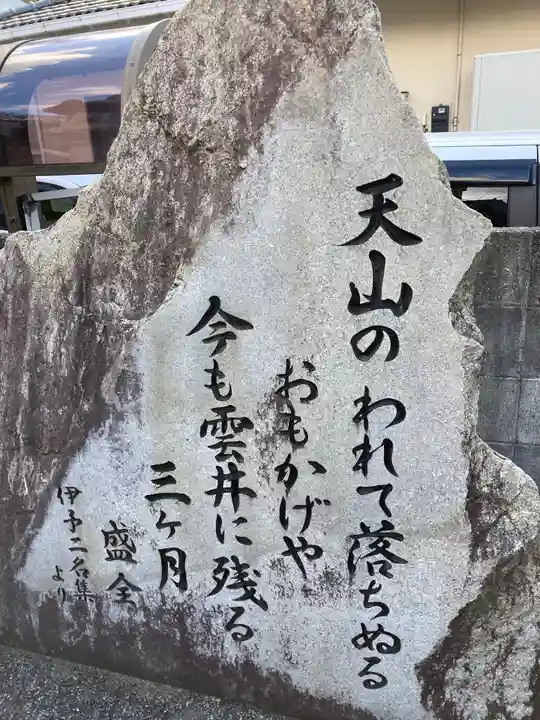 天山の われて落ちぬる
おもかげや
今も雲井に残る
三ケ月
盛全
伊予二名集
より